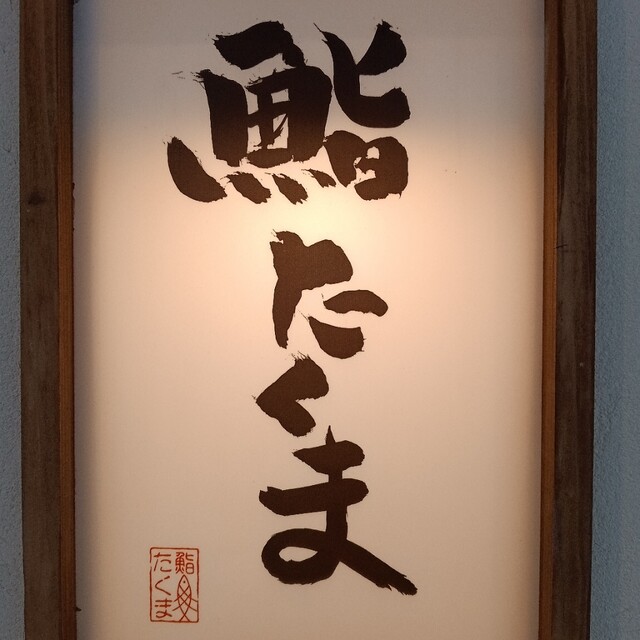 鮨たくま
鮨
たくま